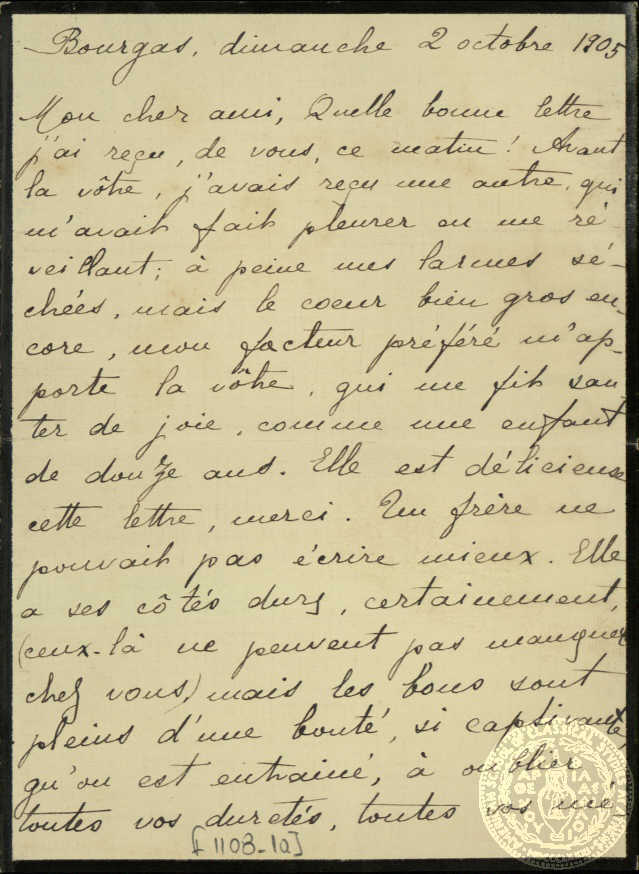 Bourgas, dimanche 2 octobre 1905
Mon cher ami, Quelle bonne lettre
j'ai reçu, de vous, ce matin! Avant
la vôtre, j'avais reçu une autre, qui
m'avait fait pleurer en me ré-
veillant; à peine mes larmes sé-
chées, mais le coeur bien gros en-
core, mon facteur préféré m'ap-
porte la vôtre, qui me fit sau
ter de joie, comme une enfant
de douze ans. Elle est délicieuse
cette lettre, merci. Un frère ne
pouvait pas écrire mieux. Elle
a ses côtés durs, certainement,
(ceux-là ne peuvent pas manquer
chez vous,) mais les bons sont
pleins d'une bonté, si captivante,
qu'on est entrainé, à oublier
toutes vos duretés, toutes vos mé
[1108-1a]